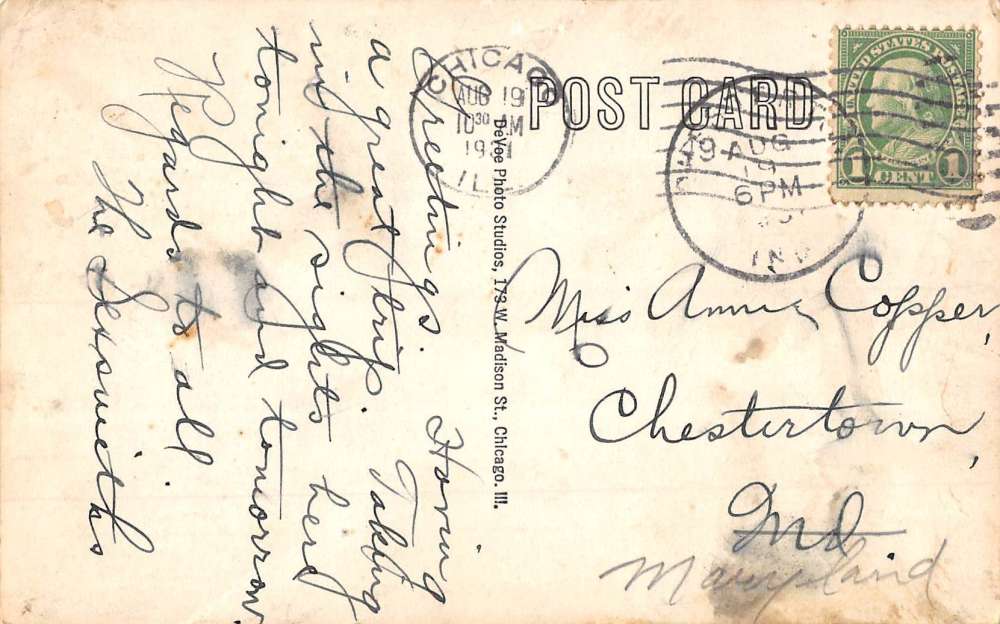 POST CARD
UNITED STATES POSTAGE
1 CENT 1
CHICAGO
AUG 19
10 30 AM
ILL
AUG
19
6 PM
Greetings. Having
a great trip. Taking
in the sights here
tonight and tomorrow.
Regards to all
The Sexsmiths
DeVoe Photo Studios, 173 W. Madison St., Chicago. Ill.
Miss Annie Copper,
Chestertown,
Md
Maryland